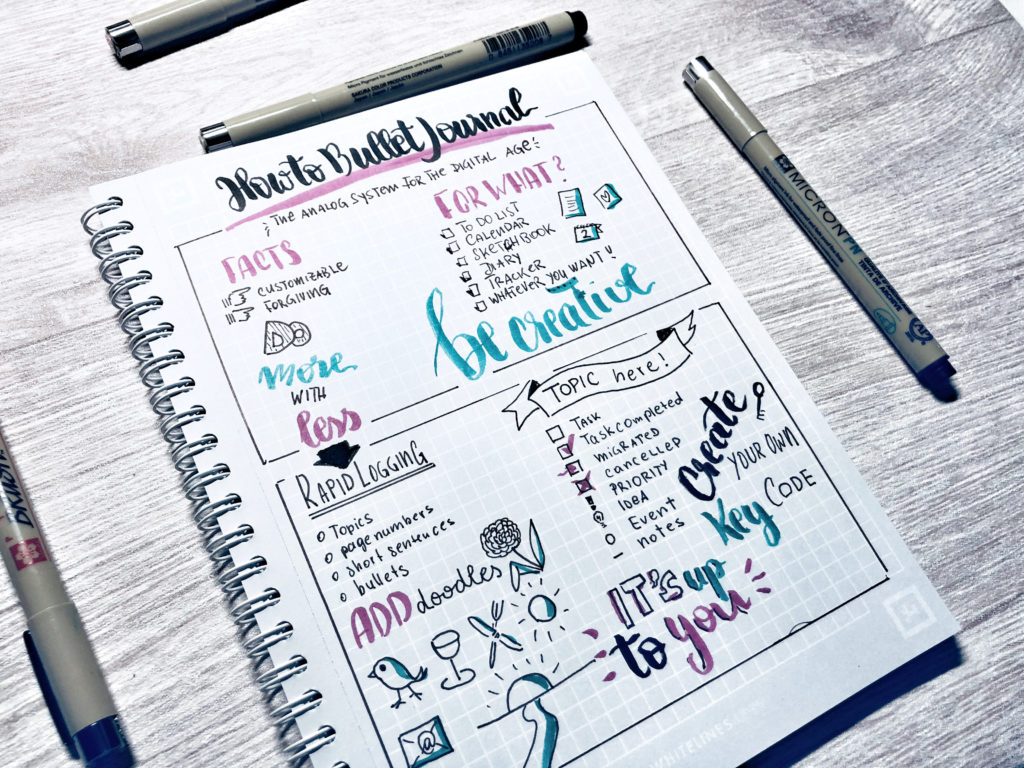 How to Bullet Journal
THE ANALOG SYSTEM FOR THE DIGITAL AGE
FACTS
CUSTOMIZABLE
FORGIVING
more
WITH
less
FOR WHAT?
TO DO LIST
CALENDAR
SKETCHBOOK
DIARY
TRACKER
WHATEVER YOU WANT!
2
be creative
TOPIC here!
RAPID LOGGING
Topics
page numbers
short sentences
bullets
ADD doodles
@
Task
Task completed
MIGRATED
cancelled
PRIORITY
IDEA
Event
notes
Create
YOUR OWN
Key CODE
IT'S up
to you
WHITELINES
SAKURA COLOR PRODUCTS CORPORATION
MICRON PN